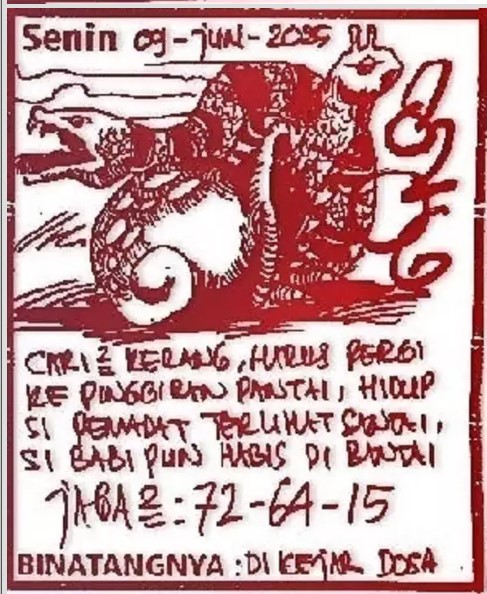 Senin 09-juni-2025
CARI2 KERANG, HARUS PERGI
KE PINGGIRAN PANTAI, HIDUP
SI PEMADAT TERLIHAT SANTAI,
SI BABI PUN HABIS DI BANTAI
JAGA2:72-64-15
BINATANGNYA : DI KEJAR DOSA